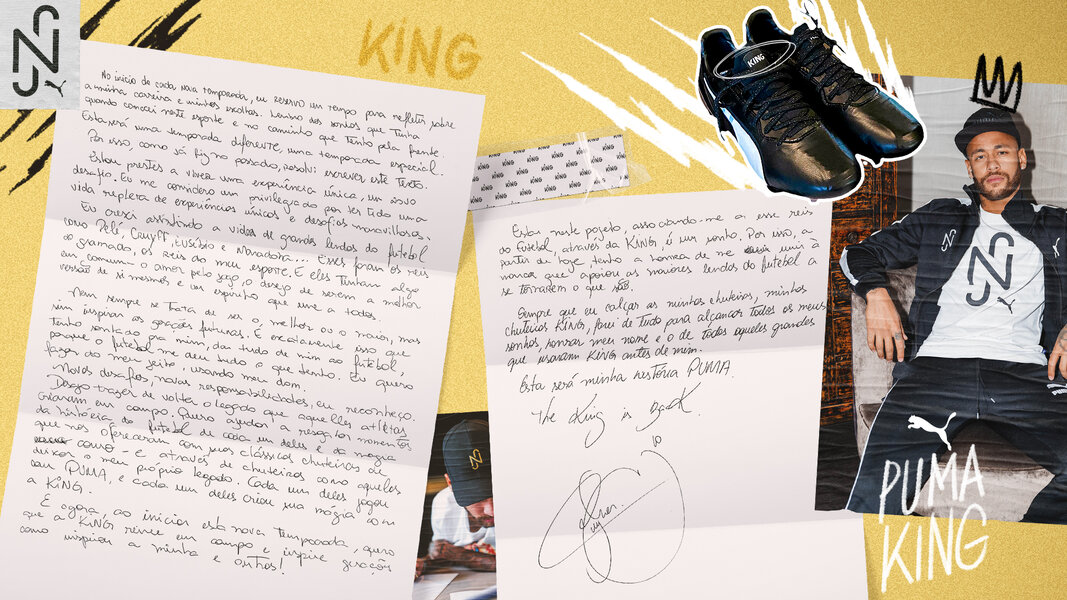 KING
No início de cada nova temporada, eu reservo um tempo para refletir sobre
a minha carreira e minhas escolhas. Lembro dos sonhos que tinha
quando comecei neste esporte e no caminho que tenho pela frente.
Esta será uma temporada diferente, uma temporada especial.
Por isso, como já fiz no passado, resolvi escrever este texto.
Estou prestes a viver uma experiência única, um novo
desafio. Eu me considero um privilegiado por ter tido uma
vida repleta de experiências únicas e desafios maravilhosos.
Eu cresci assistindo a vídeos de grandes lendas do futebol
como Pelé, Cruyff, Eusébio e Maradona... Esses foram os reis
do gramado, os reis do meu esporte. E eles tinham algo
em comum: o amor pelo jogo, o desejo de serem a melhor
versão de si mesmos e um espírito que une a todos.
Nem sempre se trata de ser o melhor ou o maior, mas
sim inspirar as gerações futuras. É exatamente isso que
tenho sonhado pra mim, dar tudo de mim ao futebol,
porque o futebol me deu tudo o que tenho. Eu quero
fazer do meu jeito, usando meu dom.
Novos desafios, novas responsabilidades, eu reconheço.
Desejo trazer de volta o legado que aqueles atletas
criaram em campo. Quero ajudar a resgatar momentos
da história do futebol de cada um deles e da magia
que nos ofereceram com suas clássicas chuteiras de
couro - e através de chuteiras como aquelas
deixar o meu próprio legado. Cada um deles jogou
com PUMA, e cada um deles criou sua mágia com
a KING.
E agora, ao iniciar esta nova temporada, quero
que a KING reine em campo e inspire gerações
como inspirou a minha e outras!
KING KING KING KING KING
Estar neste projeto, associando-me a esse reis
do futebol, através da KING, é um sonho. Por isso, a
partir de hoje, tenho a honra de me unir à
marca que apoiou as maiores lendas do futebol a
se tornarem o que são.
Sempre que eu calçar as minhas chuteiras, minhas
chuteiras KING, farei de tudo para alcançar todos os meus
sonhos, honrar meu nome e o de todos aqueles grandes
que usaram KING antes de mim.
Esta será minha história PUMA.
The King is Back.
10
KING
PUMA
KING